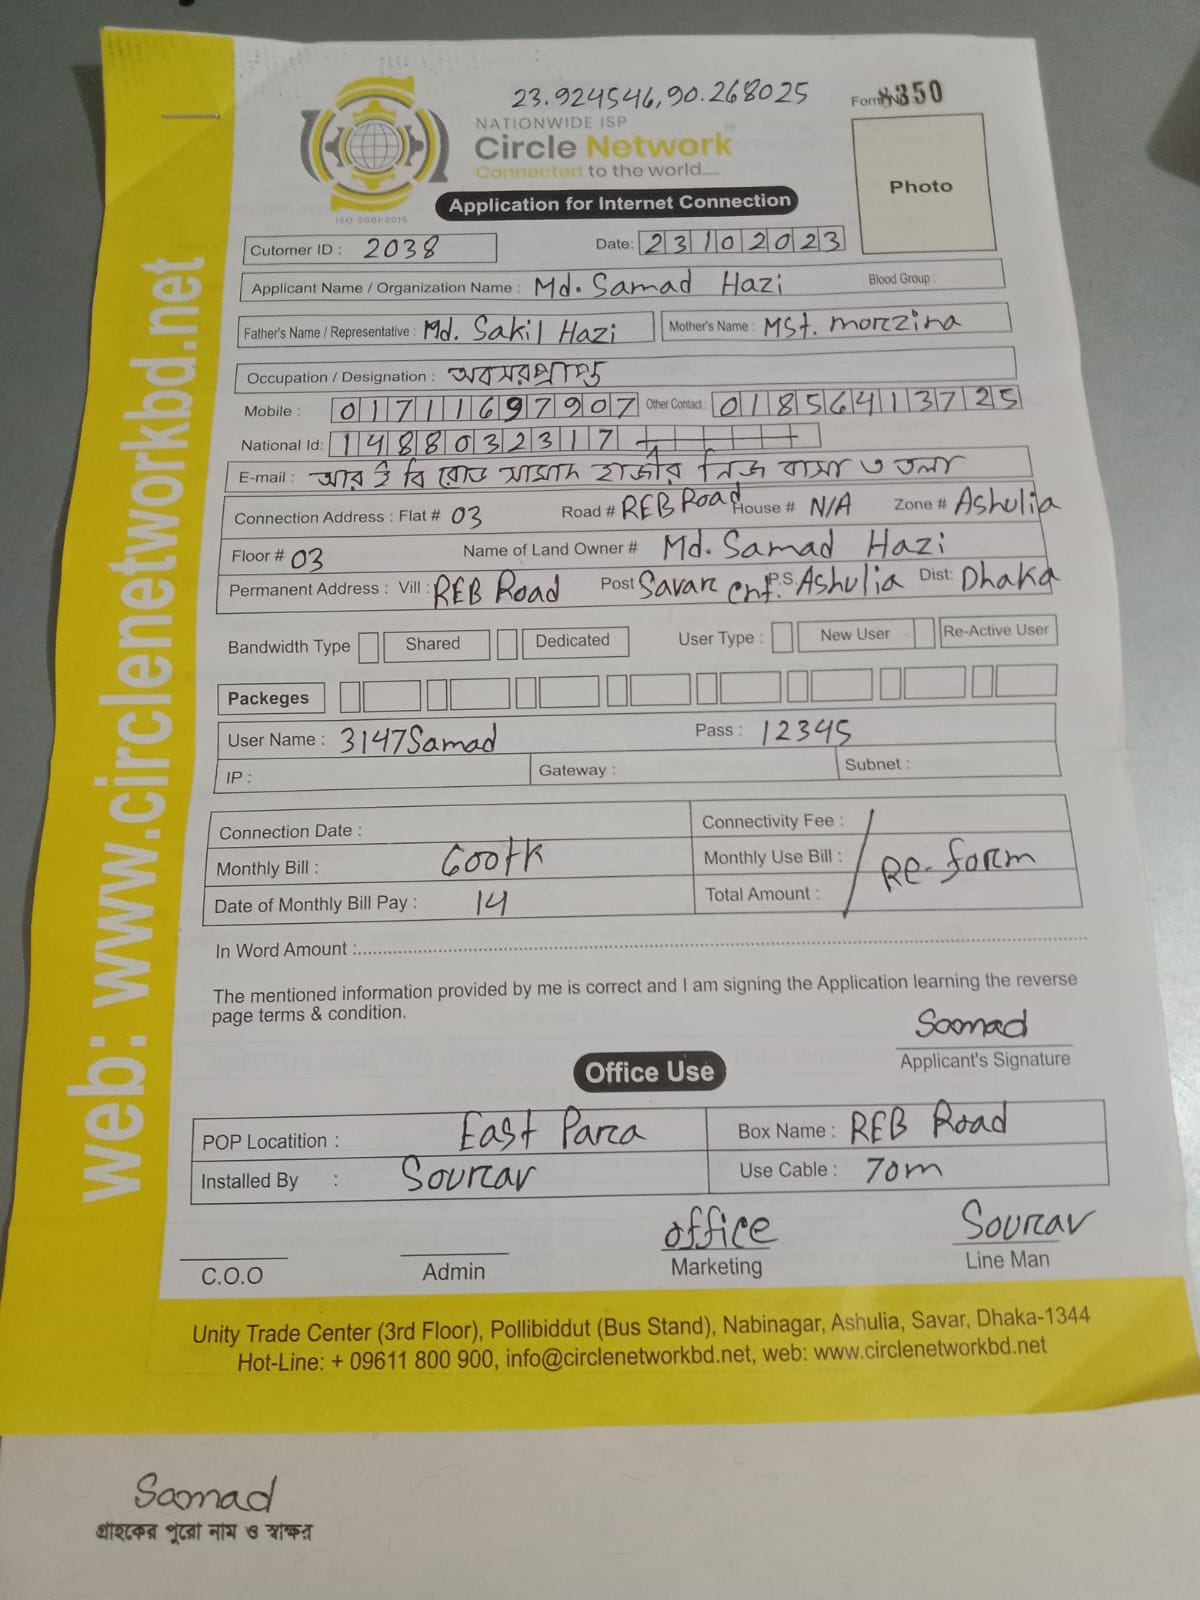 23.924546,90.268025
Form N 350
NATIONWIDE ISP
Circle Network
Connected to the world.....
ISO 9001:2015
Photo
Application for Internet Connection
Cutomer ID : 2038 Date: 23102023
Applicant Name / Organization Name : Md. Samad Hazi Blood Group :
Father's Name / Representative : Md. Sakil Hazi Mother's Name : MSt. morzina
Occupation / Designation : অবসরপ্রাপ্ত
Mobile : 01711697907 Other Contact : 01856413725
National Id: 1488032317
E-mail : আর ই বি রোড সামাদ হাজীর নিজ বাসা ৩ তলা
Connection Address : Flat # 03 Road # REB Road House # N/A Zone # Ashulia
Floor # 03 Name of Land Owner # Md. Samad Hazi
Permanent Address : Vill : REB Road Post Savar Cnt. P.S. Ashulia Dist: Dhaka
Bandwidth Type Shared Dedicated User Type : New User Re-Active User
Packeges
User Name : 3147Samad Pass : 12345
IP : Gateway : Subnet :
Connection Date : Connectivity Fee :
Monthly Bill : 600tk Monthly Use Bill : Re-form
Date of Monthly Bill Pay : 14 Total Amount :
In Word Amount :
The mentioned information provided by me is correct and I am signing the Application learning the reverse
page terms & condition.
Samad
Applicant's Signature
Office Use
POP Locatition : East Para Box Name : REB Road
Installed By : Sourav Use Cable : 70m
office Sourav
C.O.O Admin Marketing Line Man
Unity Trade Center (3rd Floor), Pollibiddut (Bus Stand), Nabinagar, Ashulia, Savar, Dhaka-1344
Hot-Line: + 09611 800 900, info@circlenetworkbd.net, web: www.circlenetworkbd.net
web: www.circlenetworkbd.net
Samad
গ্রাহকের পুরো নাম ও স্বাক্ষর